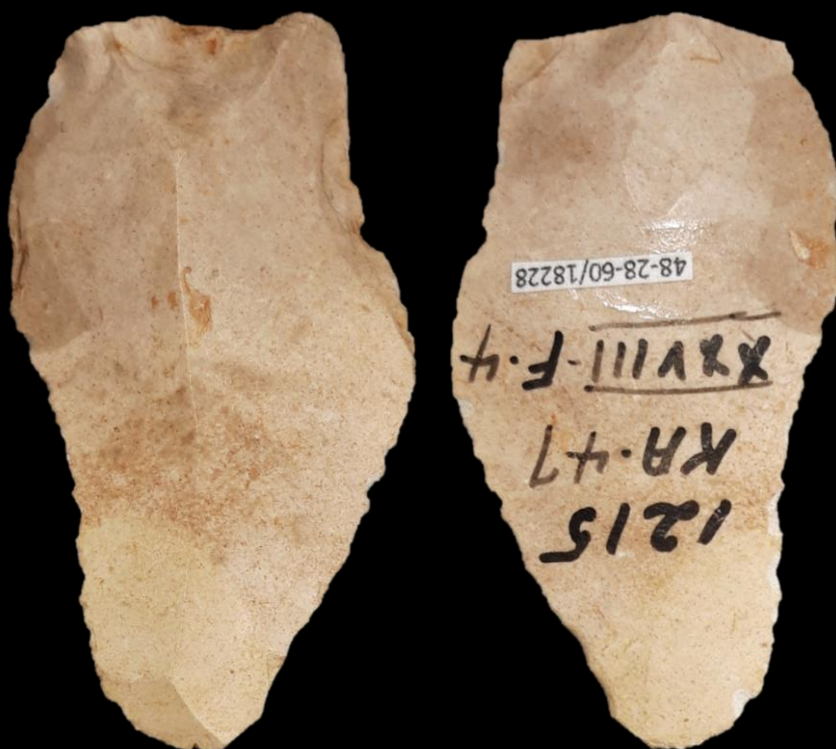 1215
KA·47
XXVIII-F·4
48-28-60/18228